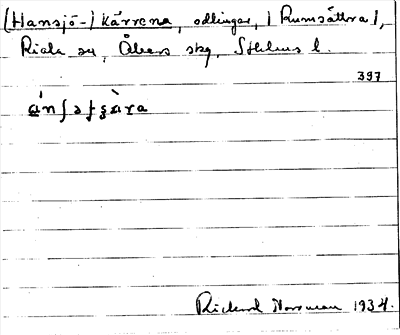 (Hansjö-) Kärrena, odlingar, (Rumsättra),
Riala sn, Åkers skg, Sthlms l.
397
Rickard Norrman 1934.